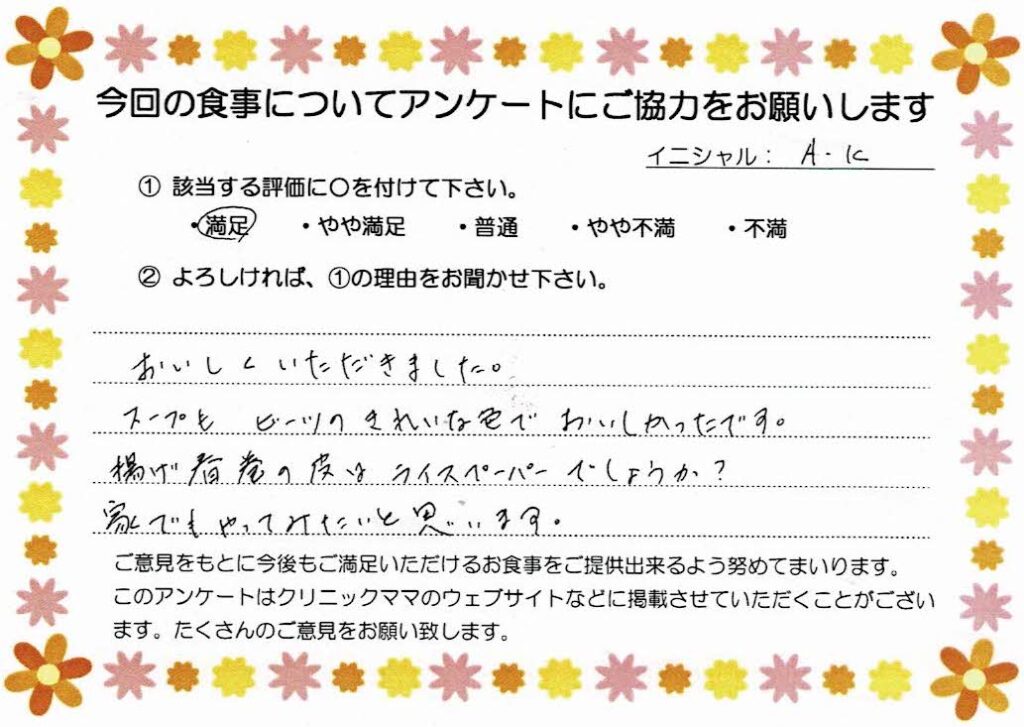 今回の食事についてアンケートにご協力をお願いします
イニシャル： A・K
① 該当する評価に〇を付けて下さい。
・満足 ・やや満足 ・普通 ・やや不満 ・不満
② よろしければ、①の理由をお聞かせ下さい。
おいしくいただきました。
スープも ビーツのきれいな色で おいしかったです。
揚げ春巻の皮は ライスペーパーでしょうか？
家でもやってみたいと思います。
ご意見をもとに今後もご満足いただけるお食事をご提供出来るよう努めてまいります。
このアンケートはクリニックママのウェブサイトなどに掲載させていただくことがござい
ます。たくさんのご意見をお願い致します。